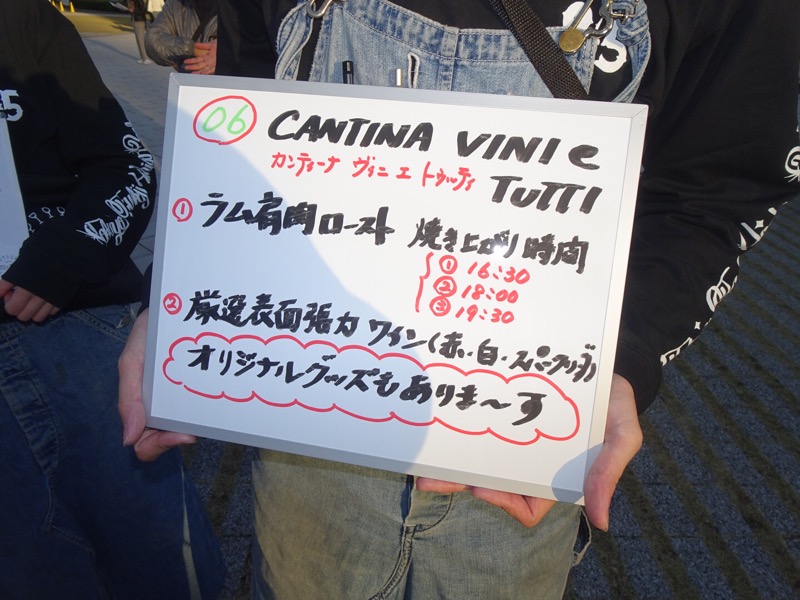 06 CANTINA VINI e
TUTTI
カンティーナ ヴィニ エ トゥッティ
① ラム肩肉ロースト 焼き上がり時間
① 16:30
② 18:00
③ 19:30
② 厳選表面張力ワイン(赤・白・スパークリング)
オリジナルグッズもありま〜す